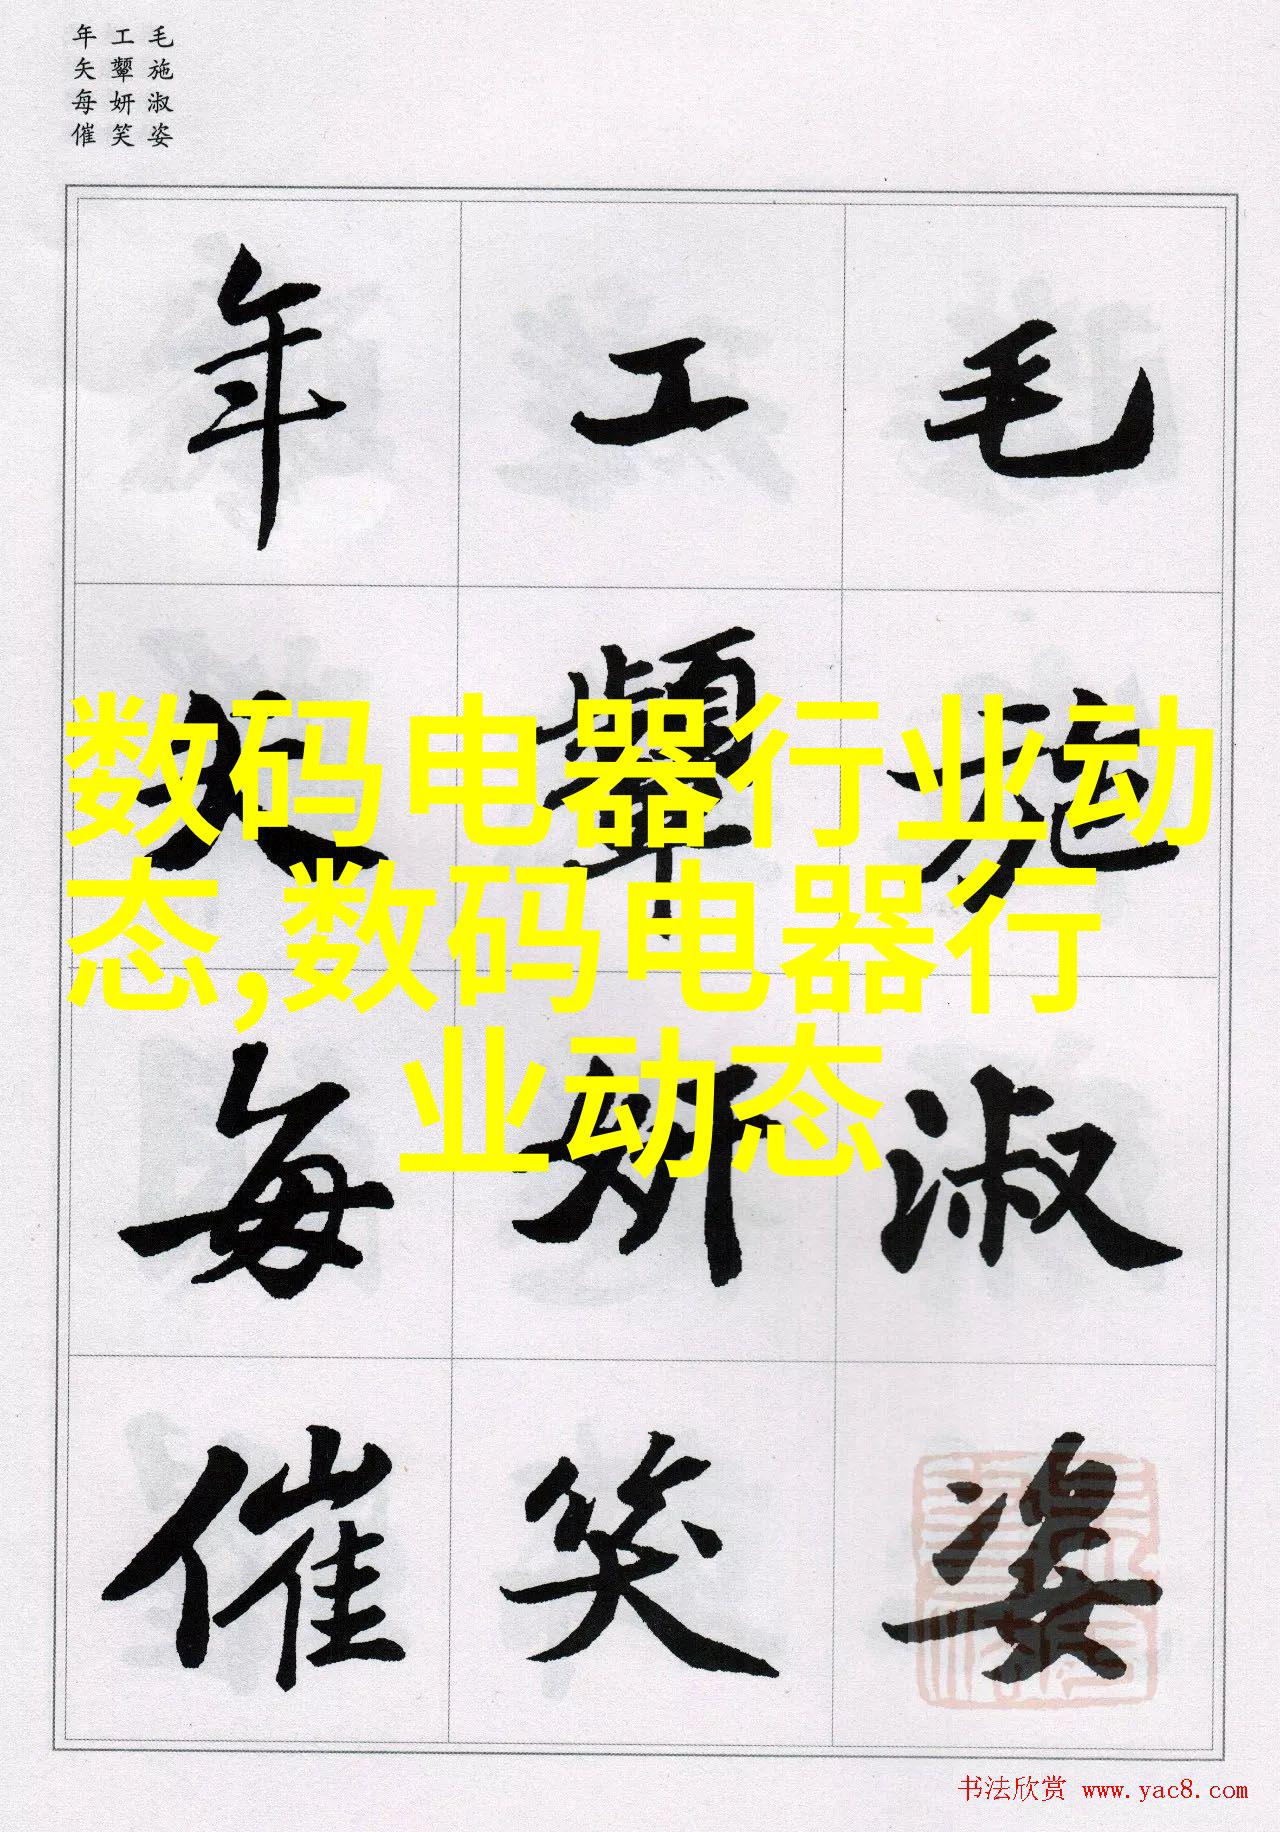 毛施淑姿
工颦妍笑
年矢每催
毛施淑姿
工颦妍笑
年矢每催
数码电器行业动
态,数码电器行
业动态
书法欣赏 www.yac8.com